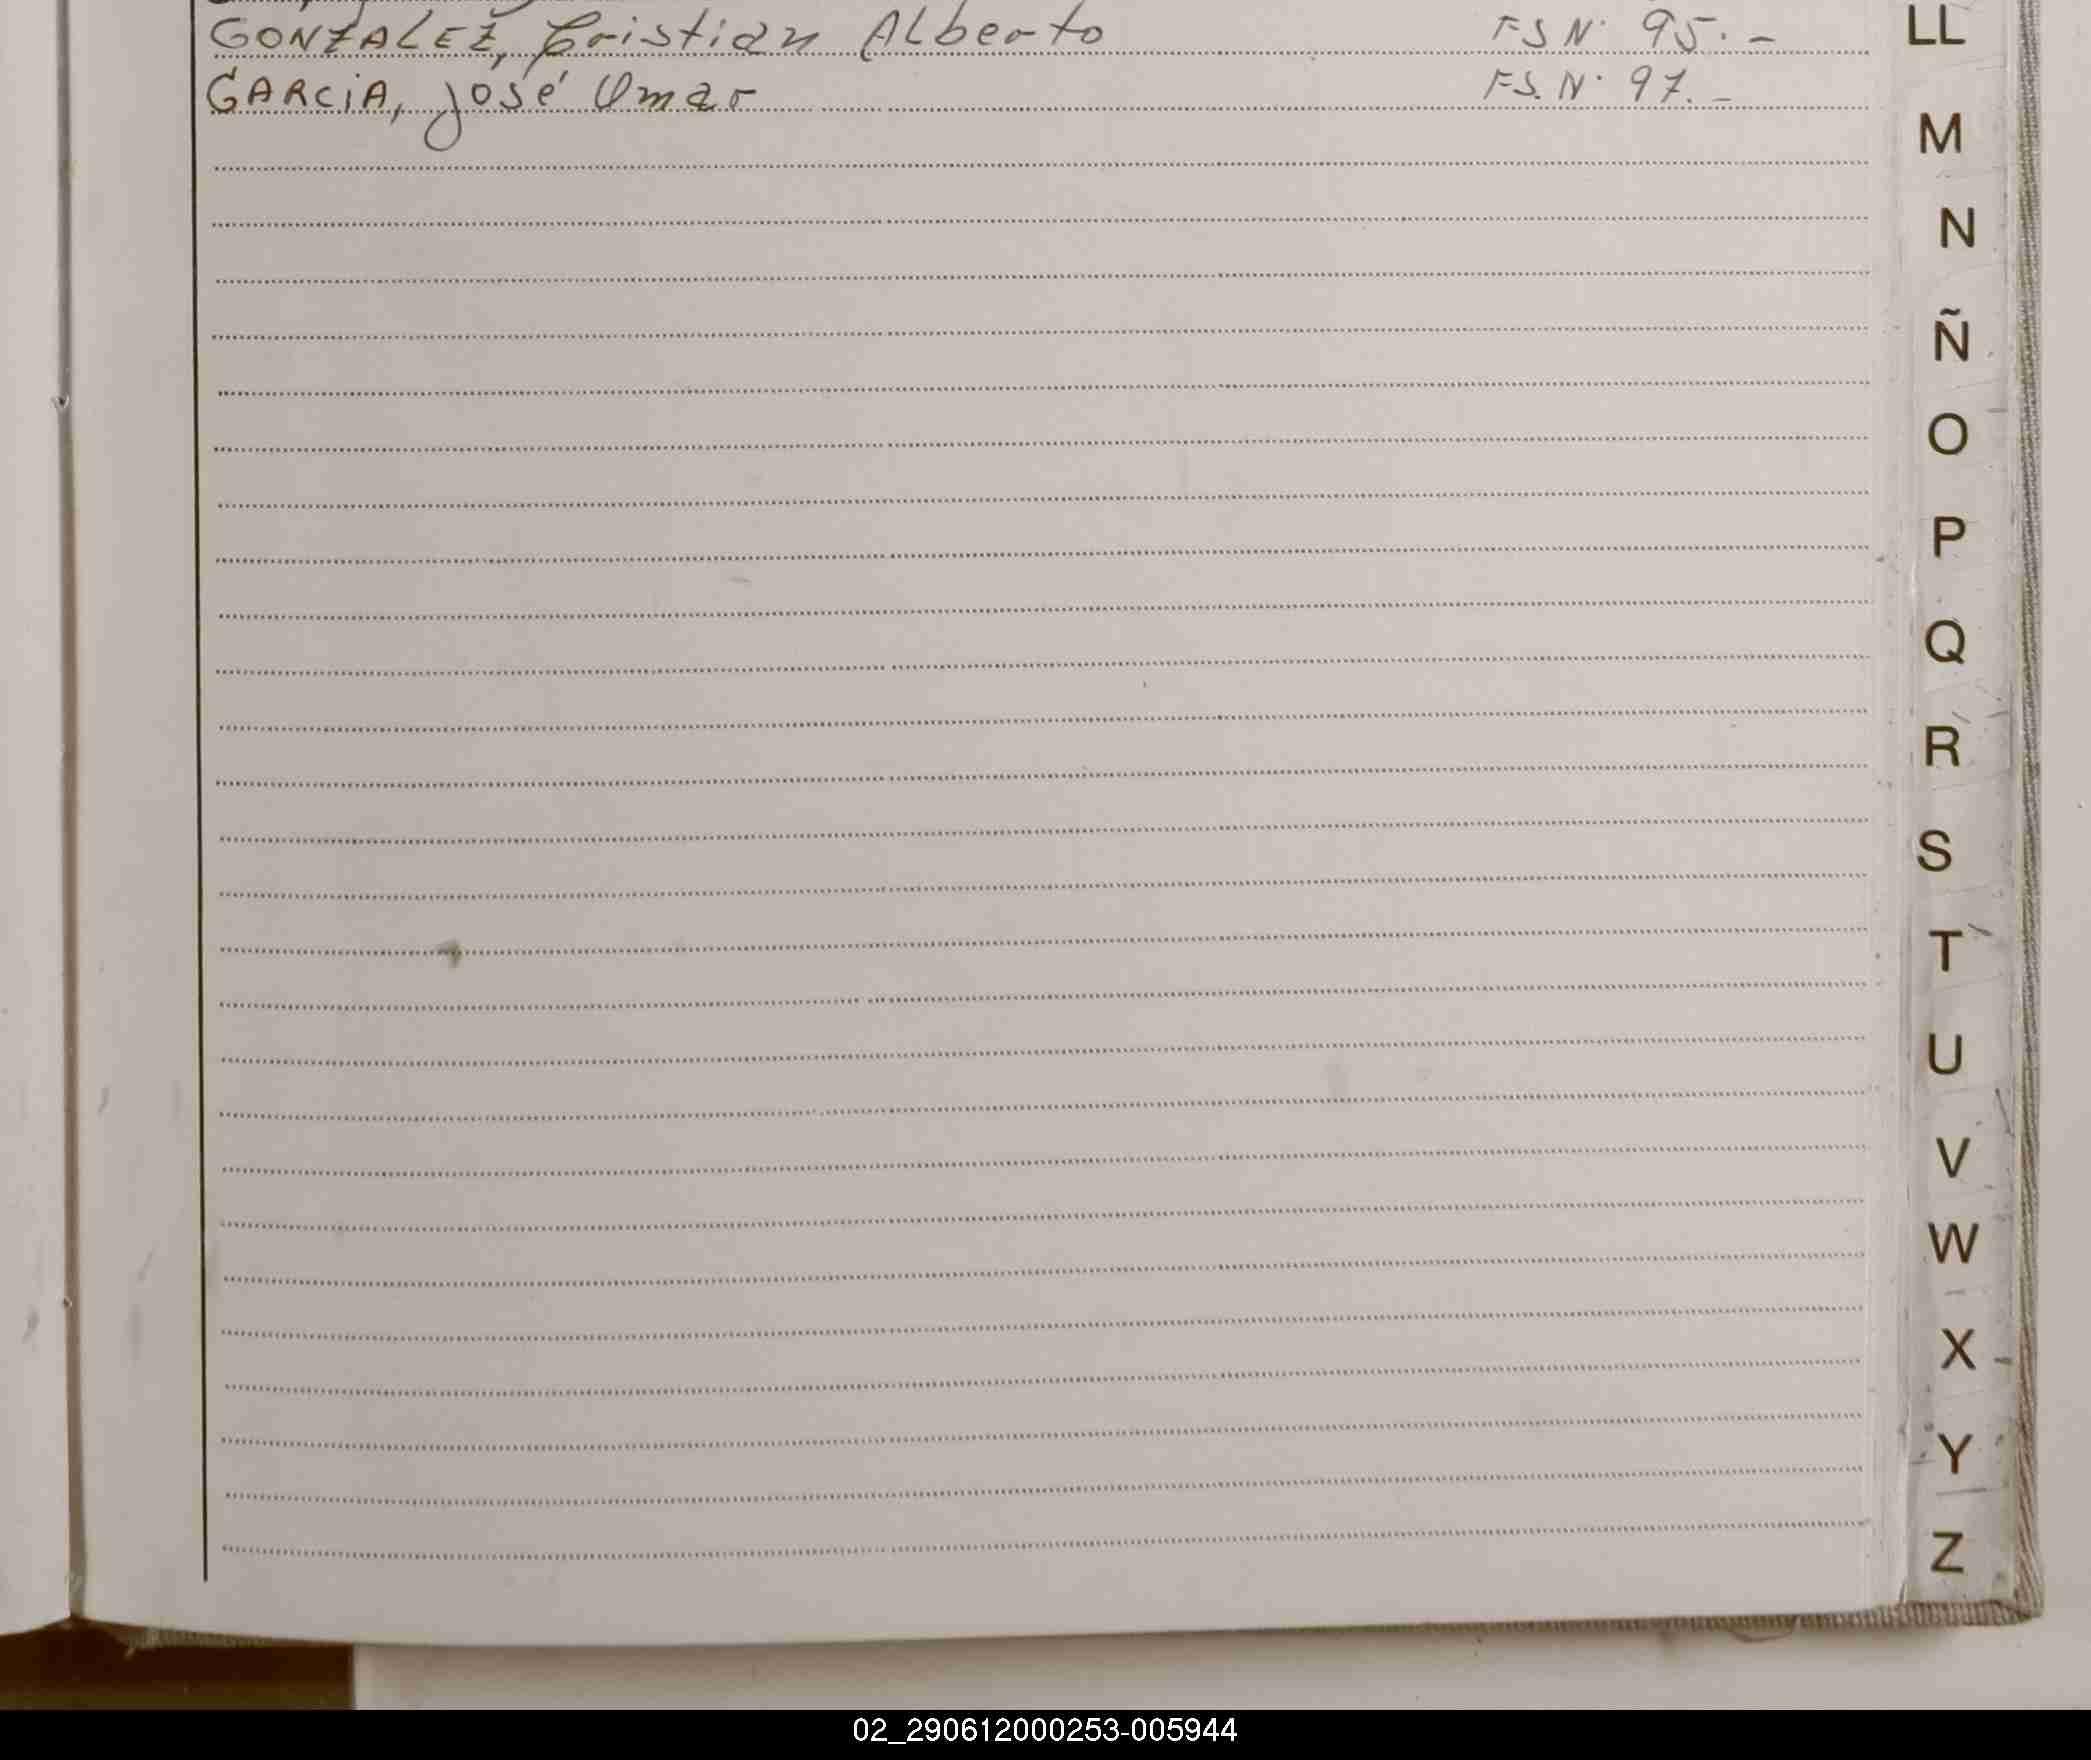 GONZALEZ, Cristian Alberto FS N· 95.-
GARCiA, José Omar FS. N· 97.-
LL
M
N
Ñ
O
P
Q
R
S
T
U
V
W
X
Y
Z
02_290612000253-005944